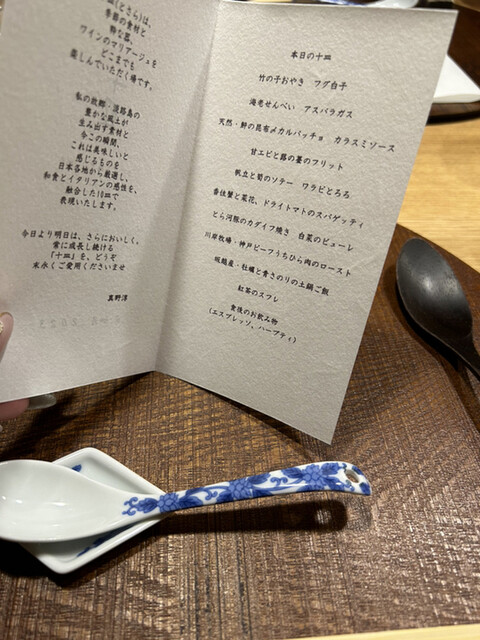 皿(とさら)は、
季節の食材と
粋な器、
ワインのマリアージュを
どこまでも
楽しんでいただく場です。
私の故郷・淡路島の
豊かな風土が
生み出す素材と
今この瞬間、
これは美味しいと
感じるものを
日本各地から厳選し、
和食とイタリアンの感性を、
融合した10皿で
表現いたします。
今日より明日は、さらにおいしく。
常に成長し続ける
「十皿」を、どうぞ
末永くご愛用くださいませ
真野淳
本日の十皿
竹の子おやき フグ白子
海老せんべい アスパラガス
天然・鮃の昆布〆カルパッチョ カラスミソース
甘エビと蕗の薹のフリット
帆立と筍のソテー ワラビとろろ
香住蟹と菜花、ドライトマトのスパゲッティ
とら河豚のカダイフ焼き 白菜のピューレ
川岸牧場・神戸ビーフうちひら肉のロースト
坂越産・牡蠣と青さのりの土鍋ご飯
紅茶のスフレ
食後のお飲み物
(エスプレッソ、ハーブティ)